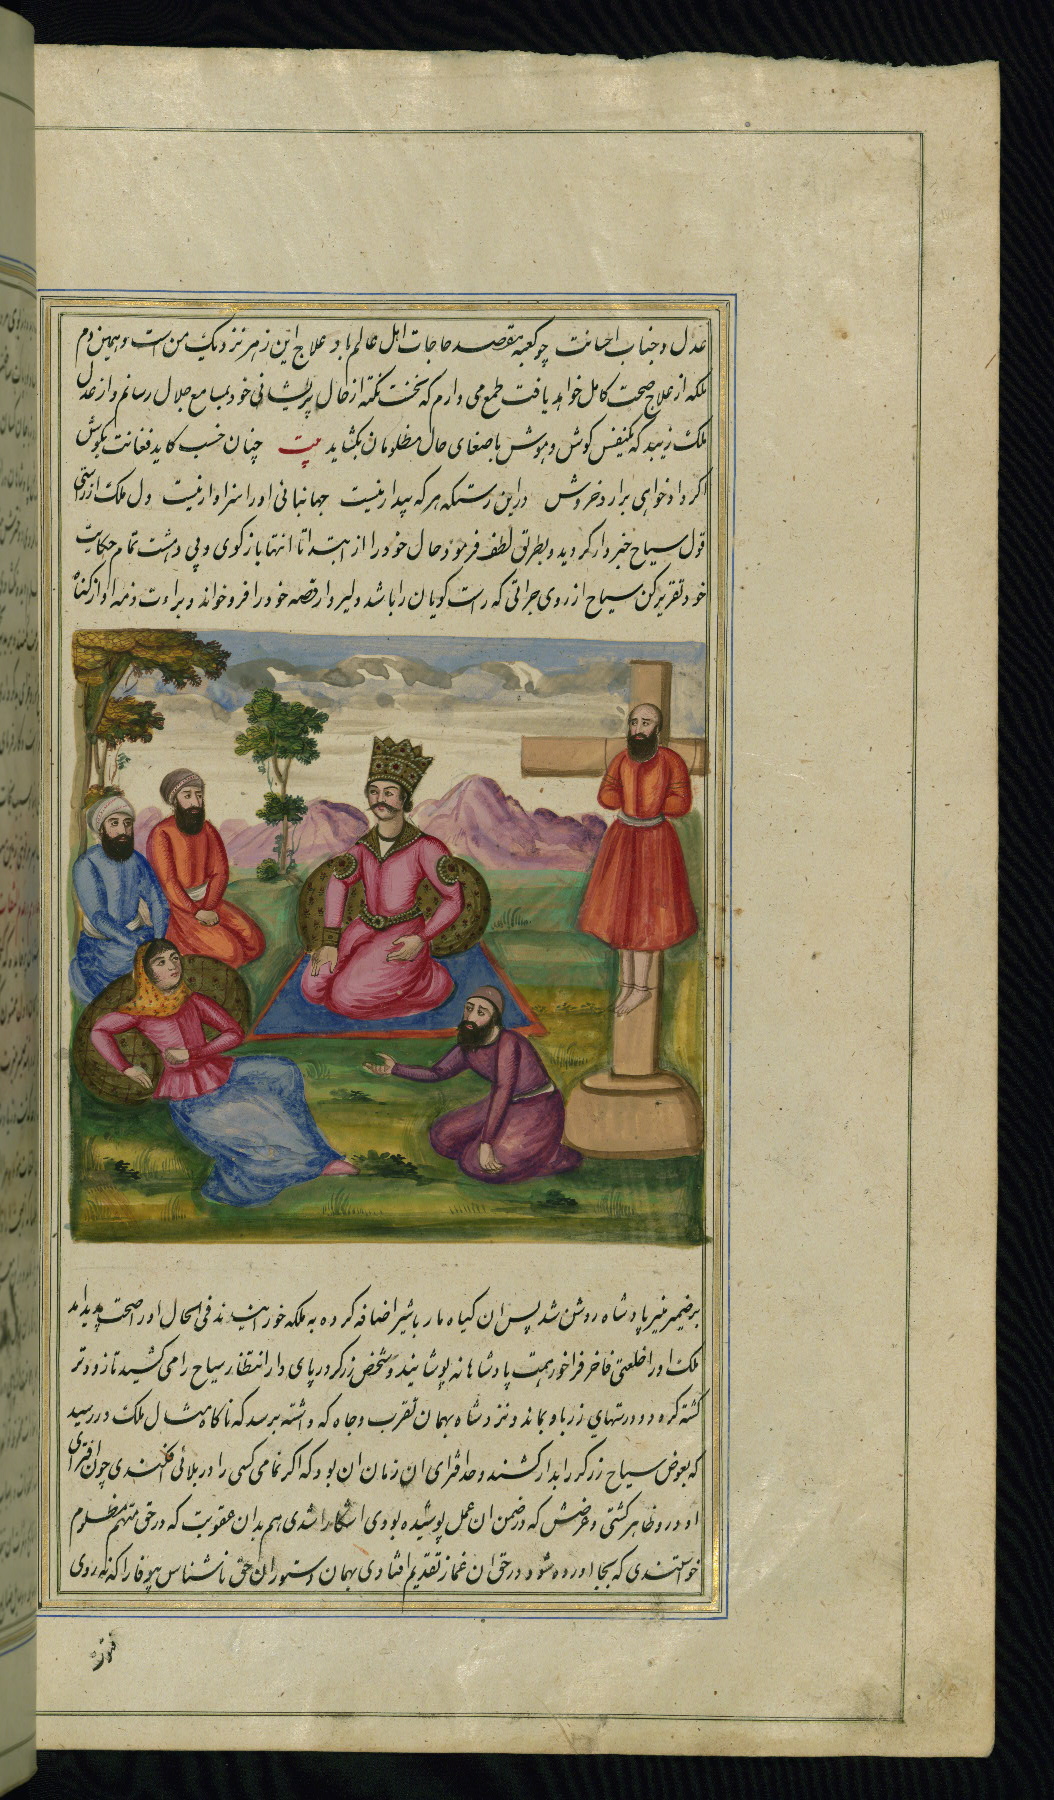 عدل و جناب احسانت چو کعبه مقصد حاجات اهل عالم باد علاج این زهر نزدیک من است و همین دم
ملکه از علاج صحت کامل خواهد یافت طمع می دارم که نخست نکته از حال پریشانی خود بمسامع جلال رسانم و از عدل
ملک زیبد که یکنفس کوش و هوش باصغای حال مظلومان بکشاید بیت چنان خسب کاید فغانت بکوش
اکر دادخواهی برارد خروش در این رسته هر که بیدار نیست جهانبانی او را سزاوار نیست دل ملک از راستی
قول سیاح خبردار کردید و بطریق لطف فرمود حال خود را از ابتدا تا انتها باز کوی و بی دهشت تمام حکایت
خود تقریر کن سیاح از روی جراتی که راست کویان را باشد دلیروار قصه خود را فرو خواند و براءت ذمه او از کناه
بر ضمیر منیر پادشاه روشن شد پس ان کیاه مار با شیر اضافه کرده به ملکه خورانیدند فی الحال اثر صحت پدید امد
ملک او را خلعتی فاخر فراخور همت پادشاهانه پوشانید و شخص زرکر در پای دار انتظار سیاح را می کشید تا زودتر
کشته کردد و درستهای زر باو بماند و نزد شاه بهمان تقرب و جاه که داشته برسد که ناکاه مثال ملک در رسید
که بعوض سیاح زرکر را بدار کشند و حد افترای ان زمان ان بود که اکر نمامی کسی را در بلائی افکندی چون افترای
او دروغ ظاهر کشتی و غرضش که در ضمن ان عمل پوشیده بودی اشکارا شدی هم بدان عقوبت که در حق متهم مظلوم
خواستندی که بجا اورده شود در حق ان غماز تقدیم افتادی بهمان دستور ان حق ناشناس بیوفا را که نه روی